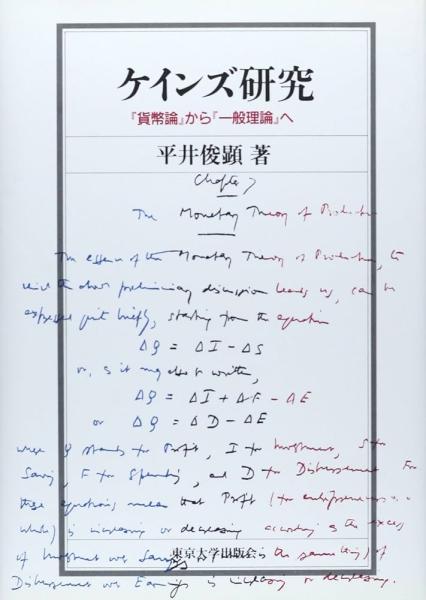 ケインズ研究
『貨幣論』から『一般理論』へ
平井俊顕 著
Chapter 7
The Monetary Theory of Production
The essence of the Monetary Theory of Production, to
which the above preliminary discussion leads us, can be
expressed quite briefly, starting from the equation
ΔQ = ΔI − ΔS
or, as it may also be written,
ΔQ = ΔI + ΔF − ΔE
or ΔQ = ΔD − ΔE
where Q stands for Profit, I for Investment, S for
Saving, F for Spending, and D for Disbursement. For
these equations mean that Profit (for entrepreneurs
is increasing or decreasing according as the excess
of Investment over Saving
東京大学出版会
is the same thing) of
Disbursement over Earnings is increasing or decreasing.